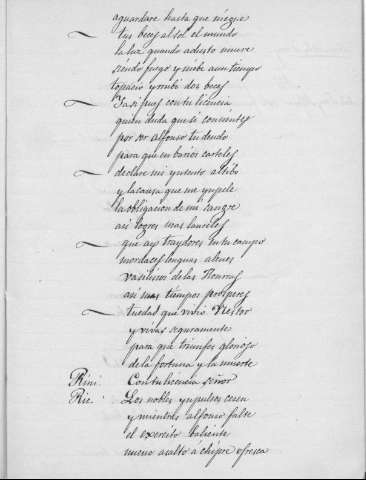 aguardare hasta que niegue
tus beces al sol el mundo
la luz quando adusto muere
siendo fuego y nube a un tiempo
topacio y rubi dos beces
Y asi pues con tu licencia
quien duda que si consientes
por ser Alfonso tu deudo
para que en barios carteles
declare mi yntento altibo
y la causa que me ympele
la obligacion de mi sangre
asi logres mas laureles
que ay traydores en tu campo
mordaces lenguas alebes
vasiliscos de las Honrras
asi mas tiempos prosperes
tu edad que vivio Nestor
y vivas seguramente
para que triunfes glorioso
de la fortuna y la muerte
Rini. Con tu licencia señor
Ric. Los nobles ympulsos cesen
y mientras alfonso falte
el exercito baliente
nuevo asalto á chipre ofresca